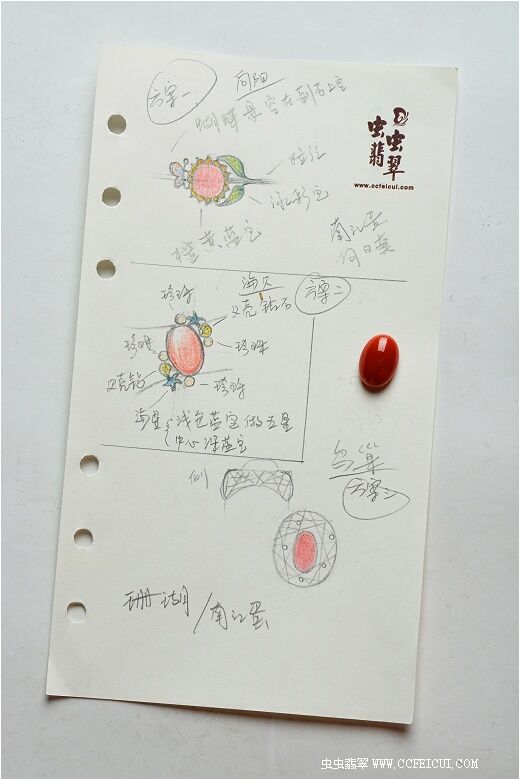 方案一
向阳
蝴蝶悬空在副石上空
虫虫
翡翠
www.ccfeicui.com
橙黄蓝宝
南红蛋
向日葵
海贝
方案二
珍珠
贝壳钻石
珍珠
珍珠
贝壳钻
珍珠
海星
浅色蓝宝做五星
中心深蓝宝
鸟巢
方案三
侧
珊瑚/南红蛋
虫虫翡翠 WWW.CCFEICUI.COM